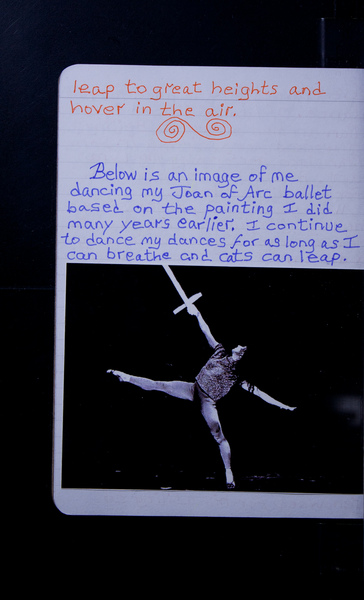 leap to great heights and
hover in the air.
Below is an image of me
dancing my Joan of Arc ballet
based on the painting I did
many years earlier. I continue
to dance my dances for as long as I
can breathe and cats can leap.